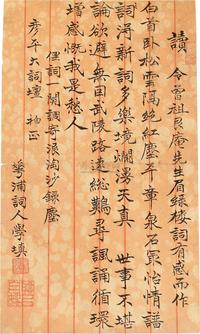 讀 令曾祖艮庵先生眉綠樓詞有感而作
白首臥松雲隔絕紅塵平章泉石最怡情譜
詞淂新詞多樂境爛漫天真 世事不堪
論欲避無因武陵路遠總難尋諷誦循環
增感慨我是愁人
俚詞一闋調寄浪淘沙錄塵
彥平大詞壇 拍正
詞人學填